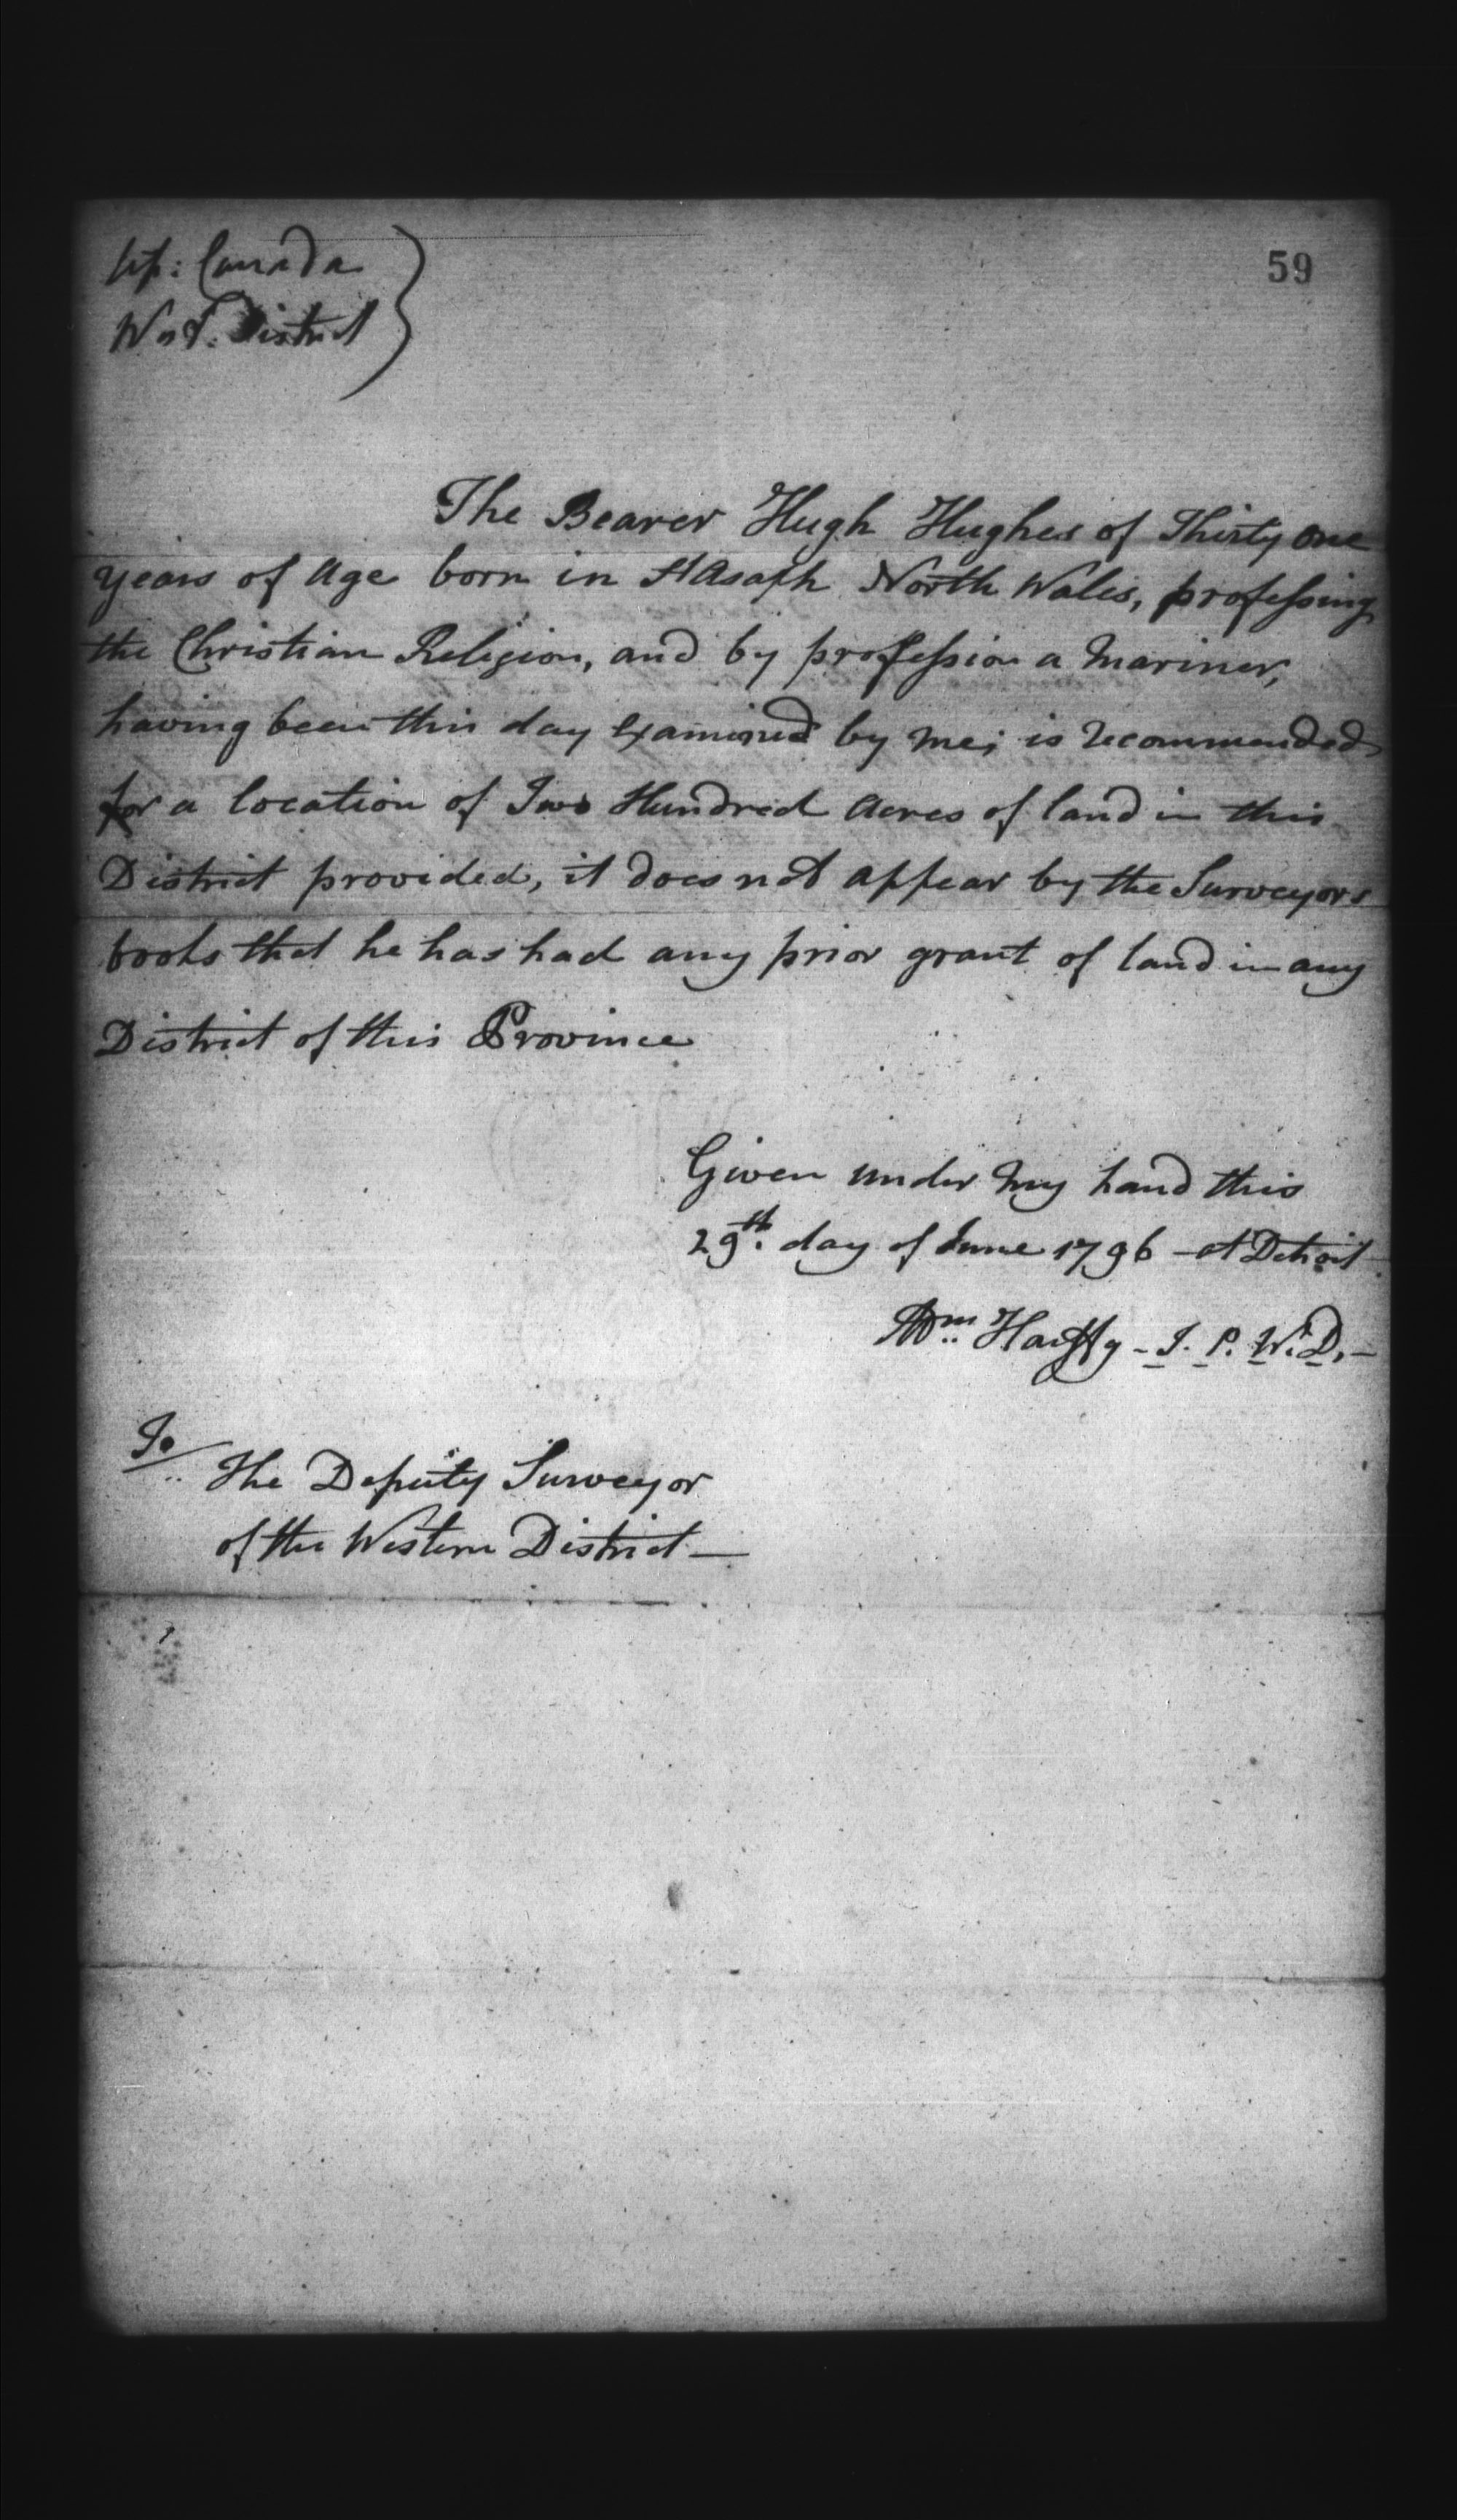 Up: Canada
West. District
59
The Bearer Hugh Hughes of Thirty one
years of Age born in St Asaph North Wales, professing
the Christian Religion, and by profession a Mariner,
having been this day examined by me; is recommended
for a location of Two Hundred Acres of land in this
District provided, it does not appear by the Surveyors
books that he has had any prior grant of land in any
District of this Province
Given under my hand this
29th. day of June 1796 - at Detroit
Wm Harffy - J. P. W. D. -
To
The Deputy Surveyor
of the Western District —